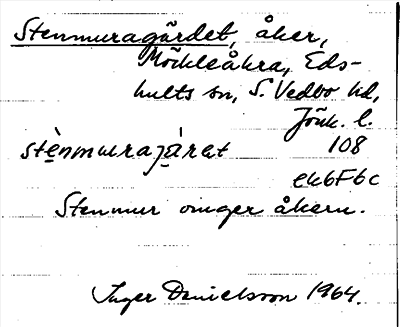 Stenmuragärdet, åker,
Möckleåkra, Eds-
hults sn, S. Vedbo hd,
Jönk. l.
stènmurajäret 108
ek6F6c
Stenmur omger åkern.
Inger Danielsson 1964.